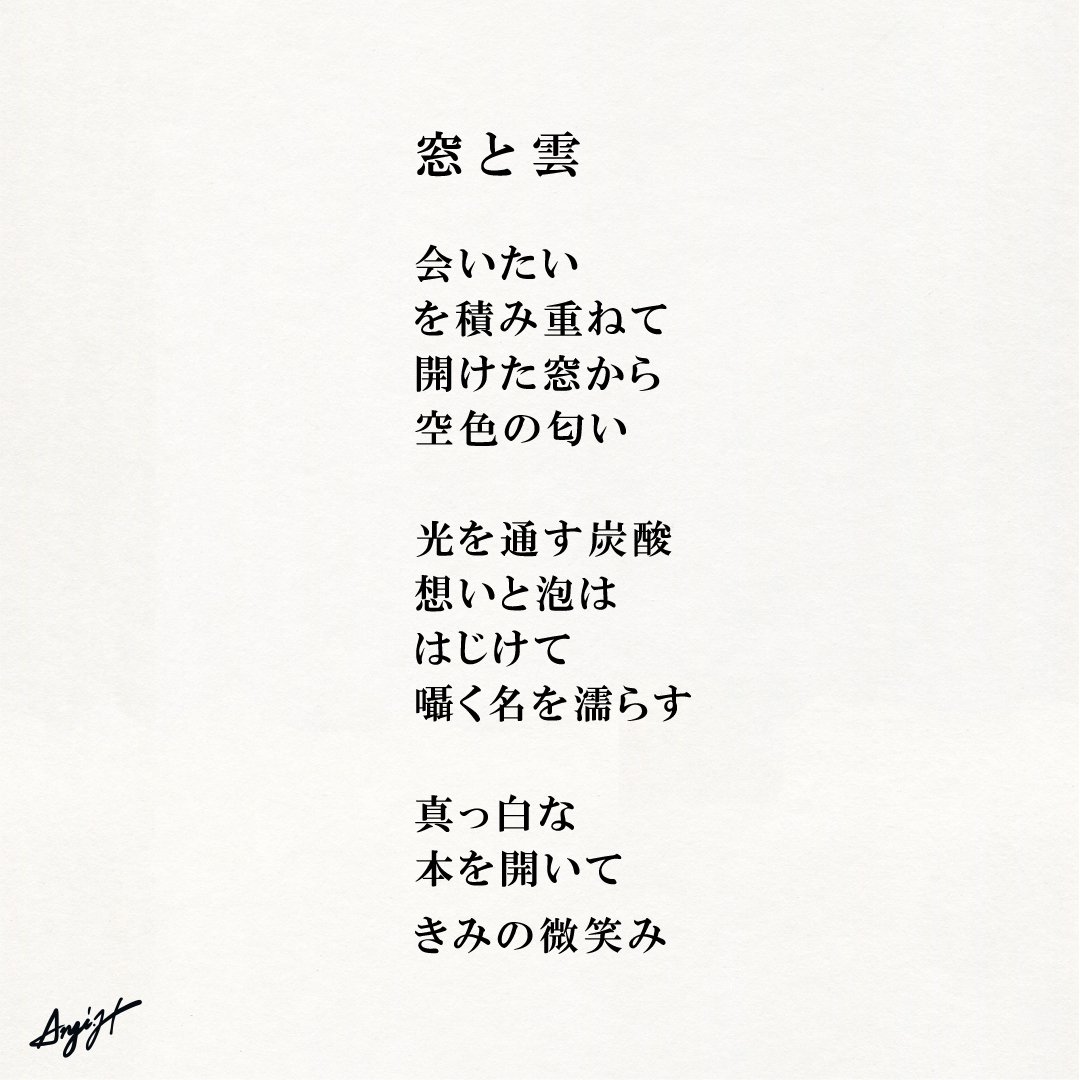 窓と雲
会いたい
を積み重ねて
開けた窓から
空色の匂い
光を通す炭酸
想いと泡は
はじけて
囁く名を濡らす
真っ白な
本を開いて
きみの微笑み